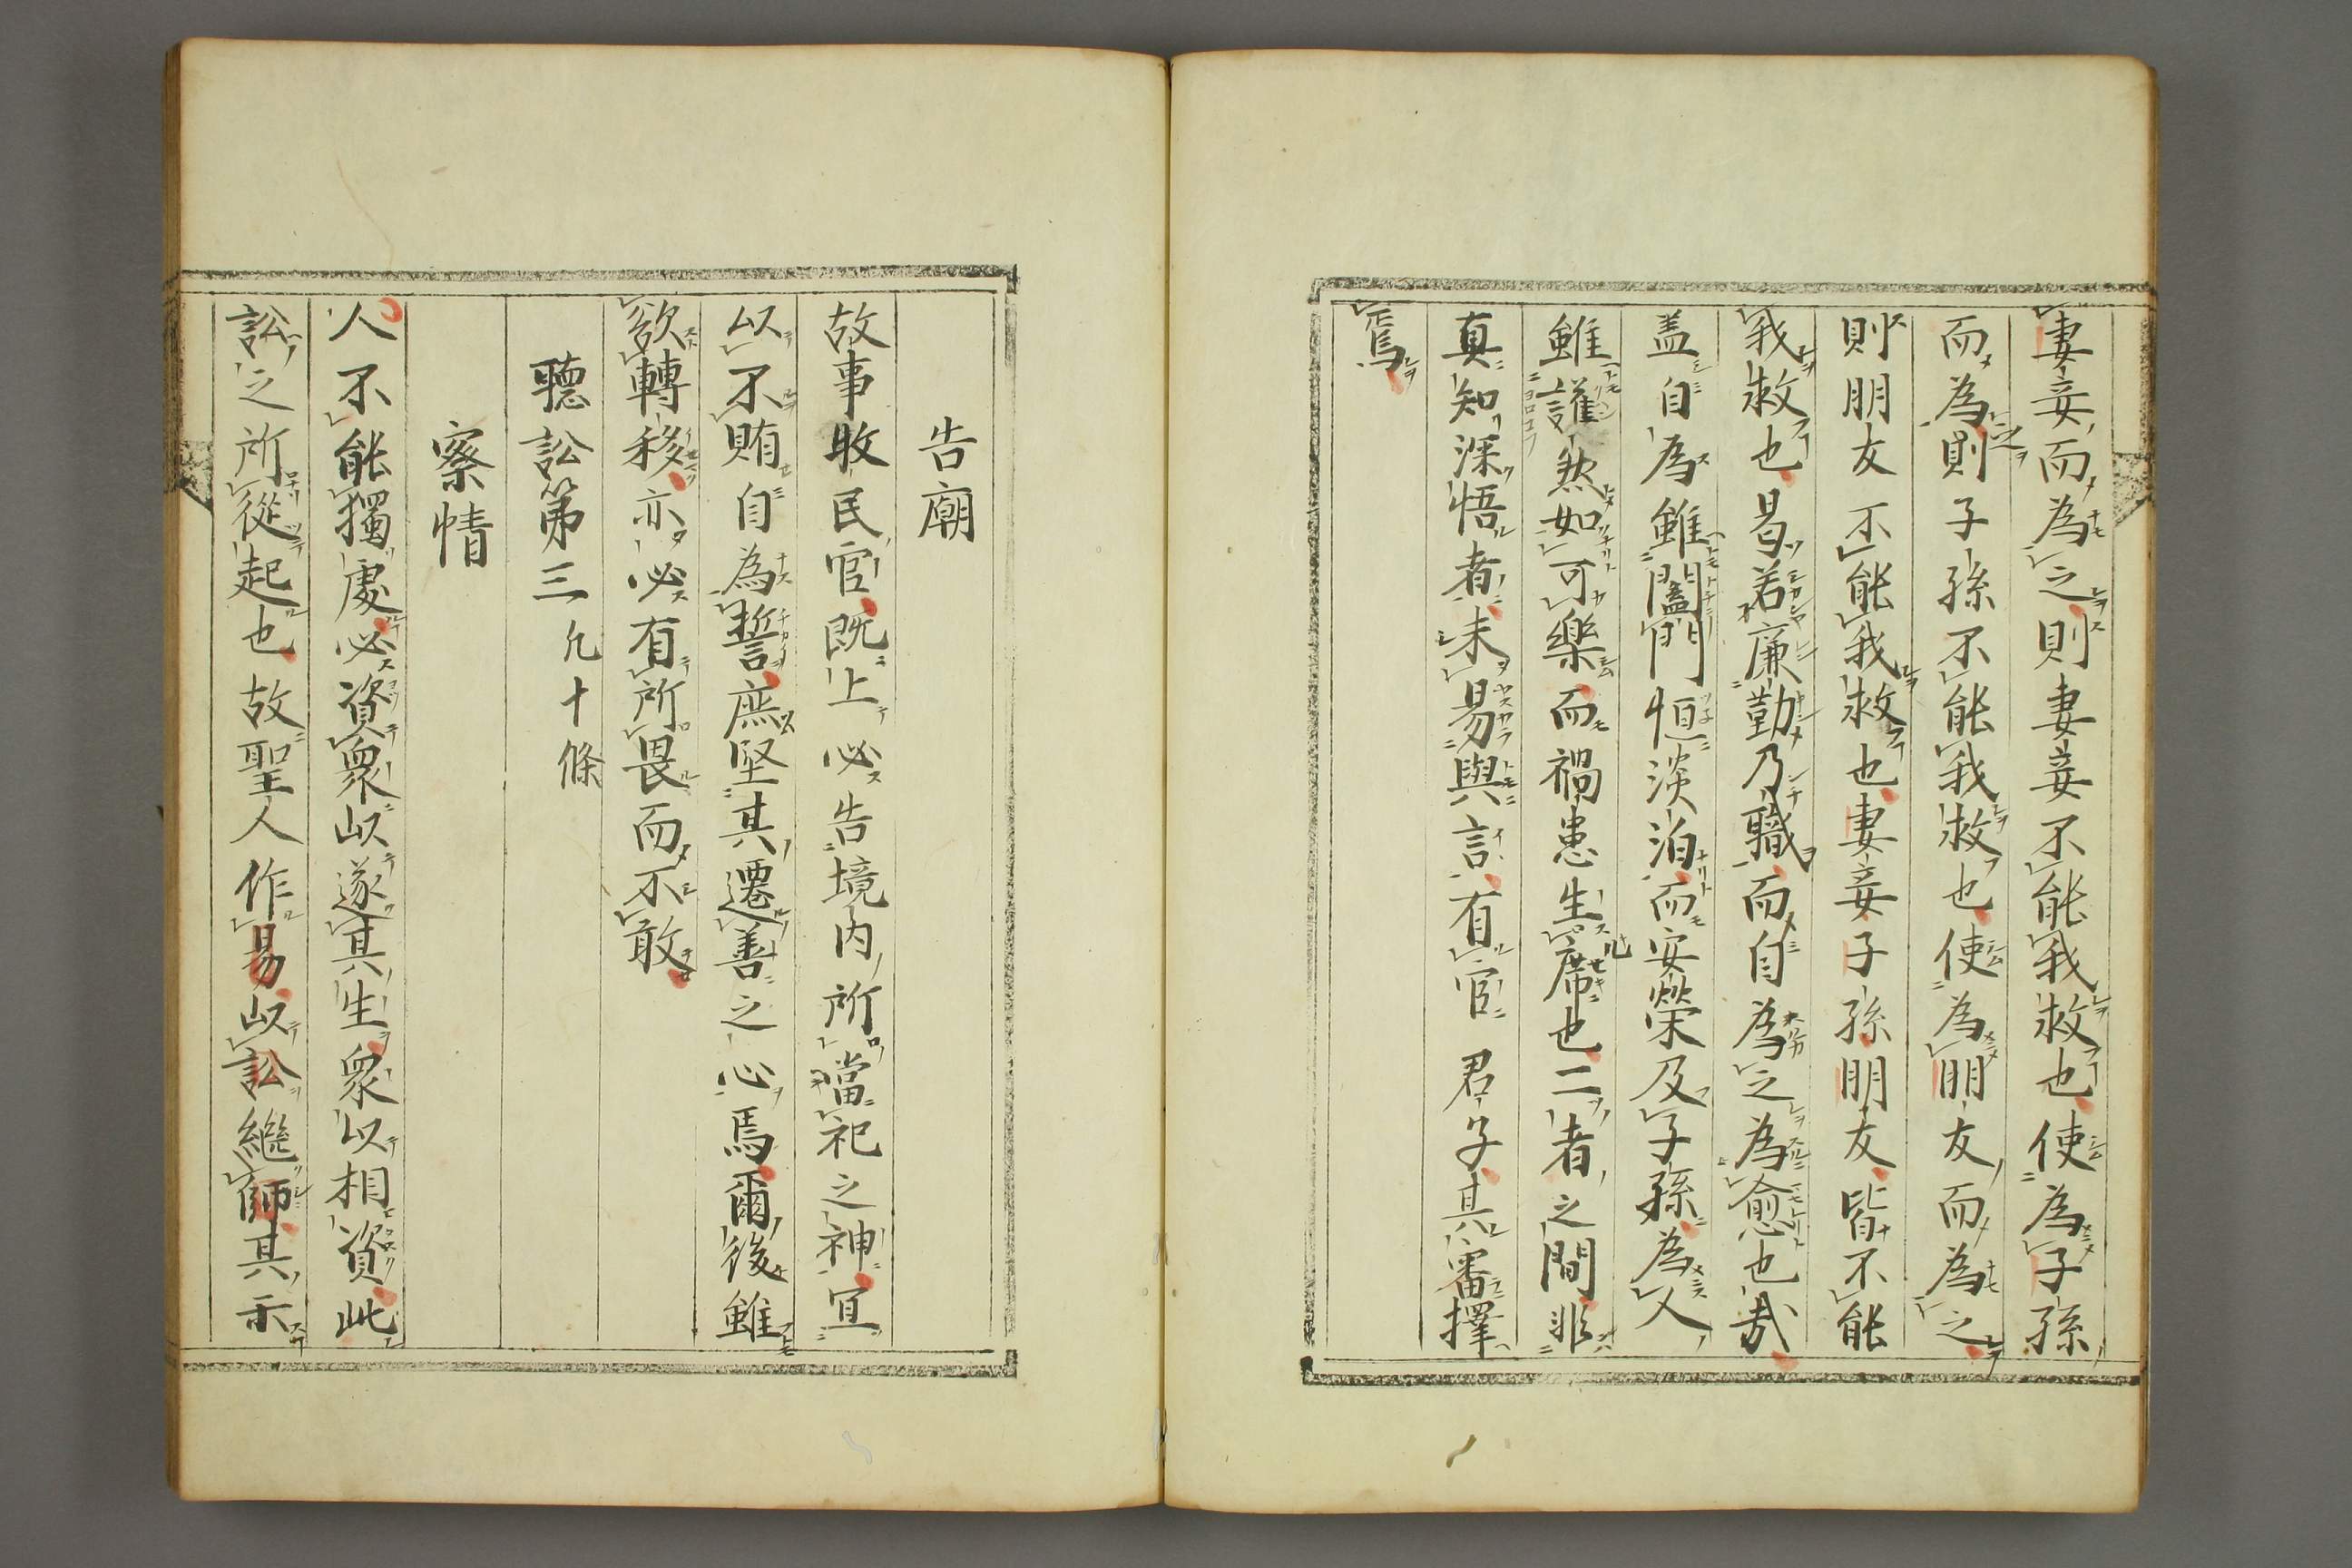 妻妾而為之則妻妾不能我救也使為子孫
而為之則子孫不能我救也使為朋友而為之
則朋友不能我救也妻妾子孫朋友皆不能
我救也曷若廉勤乃職而自為之為愈也哉
盖自為雖闔門恒淡泊而安榮及子孫為人
雖讙然如可樂而禍患生几席也二者之間非
真知深悟者未易與言有官君子其審擇
焉
告廟
故事牧民官既上必告境內所當祀之神宜
以不賄自為誓庶堅其遷善之心焉爾後雖
欲轉移亦必有所畏而不敢
聽訟第三凢十條
察情
人不能獨處必資衆以遂其生衆以相資此
訟之所從起也故聖人作易以訟繼師其示